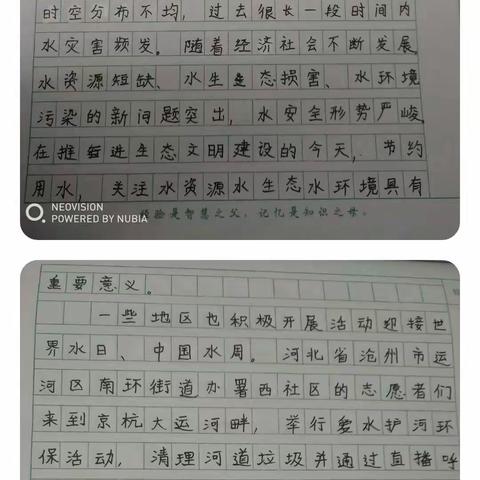 时空分布不均，过去很长一段时间内
水灾害频发。随着经济社会不断发展
水资源短缺、水生生态损害、水环境
污染的新问题突出，水安全形势严峻
在推进生态文明建设的今天，节约
用水，关注水资源水生态水环境具有
NEOVISION
POWERED BY NUBIA
经验是智慧之父，记忆是知识之母。
重要意义。
一些地区也积极开展活动迎接世
界水日、中国水周。河北省沧州市运
河区南环街道办署西社区的志愿者们
来到京杭大运河畔，举行爱水护河环
保活动，清理河道垃圾并通过直播呼